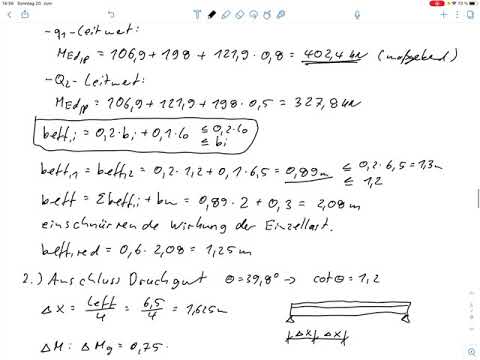 14:54 Sonntag 20. Juni
- q1 - Leitwert:
MEd,p = 106,9 + 198 + 121,9 · 0,8 = 402,4 kN (maßgebend)
- Q2 - Leitwert:
MEd,p = 106,9 + 121,9 + 198 · 0,5 = 327,8 kN
beff,i = 0,2 · bi + 0,1 · l0 ≤ 0,2 · l0
≤ bi
beff,1 = beff,2 = 0,2 · 1,2 + 0,1 · 6,5 = 0,89m ≤ 0,2 · 6,5 = 1,3m
≤ 1,2
beff = Σbeff,i + bw = 0,89 · 2 + 0,3 = 2,08m
einschnürende Wirkung der Einzellast.
beff,red = 0,6 · 2,08 = 1,25m
2.) Anschluss Druckgurt Θ = 39,8° → cotΘ = 1,2
Δx = Leff/4 = 6,5/4 = 1,625m
Δx Δx
ΔM : ΔMg = 0,75 ·